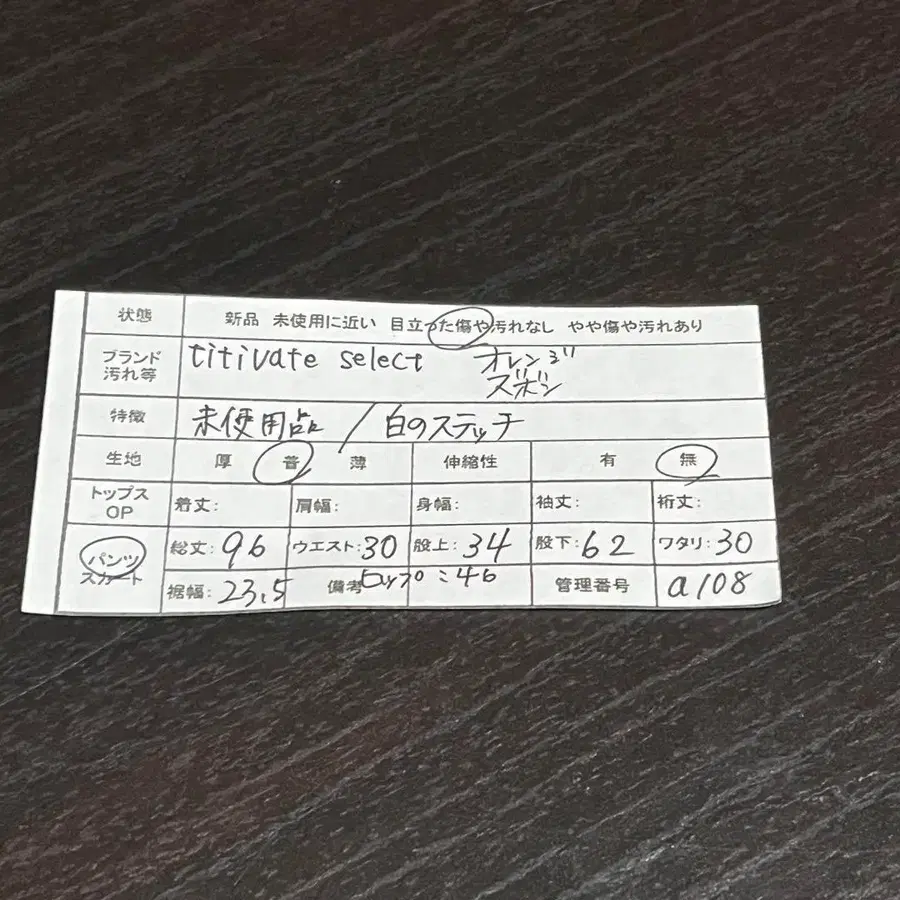 状態 新品 未使用に近い 目立った傷や汚れなし やや傷や汚れあり
ブランド 汚れ等 titivate select オレンジ
ズボン
特徴 未使用品 / 白のステッチ
生地 厚 普 薄 伸縮性 有 無
トップス OP 着丈: 肩幅: 身幅: 袖丈: 裄丈:
パンツ スカート 総丈:96 ウエスト:30 股上:34 股下:62 ワタリ:30
裾幅:23.5 備考 ヒップ:46 管理番号 a108